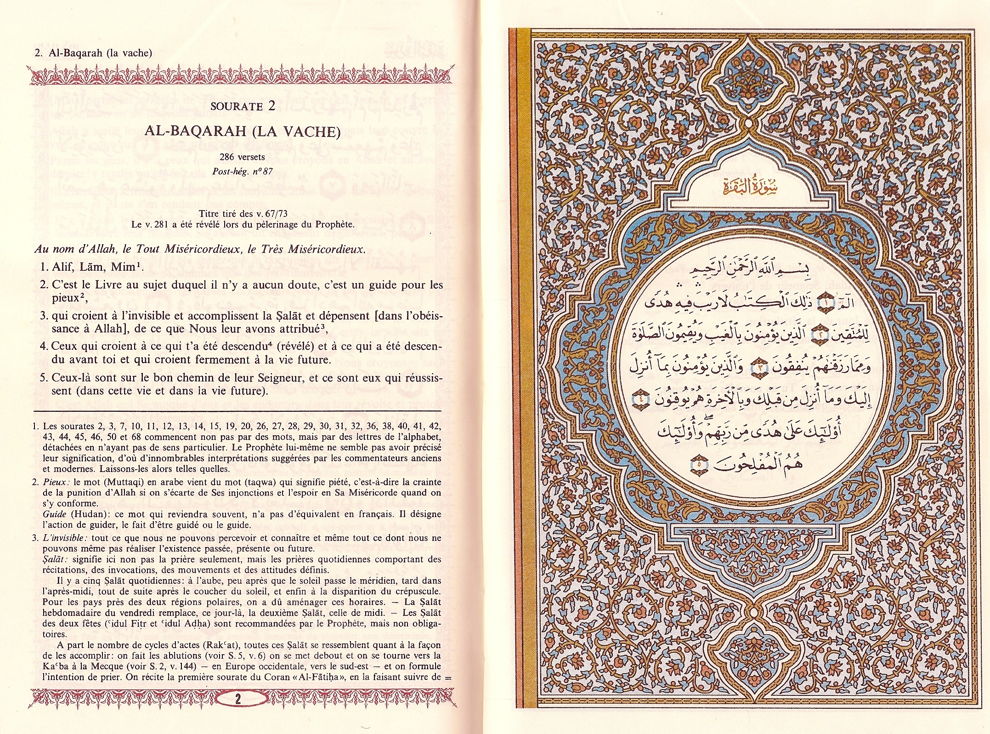 2. Al-Baqarah (la vache)
SOURATE 2
AL-BAQARAH (LA VACHE)
286 versets
Post-hég. n° 87
Titre tiré des v. 67/73
Le v. 281 a été révélé lors du pèlerinage du Prophète.
Au nom d'Allah, le Tout Miséricordieux, le Très Miséricordieux.
1. Alif, Lām, Mim¹.
2. C'est le Livre au sujet duquel il n'y a aucun doute, c'est un guide pour les
pieux²,
3. qui croient à l'invisible et accomplissent la Ṣalāt et dépensent [dans l'obéis-
sance à Allah], de ce que Nous leur avons attribué³,
4. Ceux qui croient à ce qui t'a été descendu⁴ (révélé) et à ce qui a été descen-
du avant toi et qui croient fermement à la vie future.
5. Ceux-là sont sur le bon chemin de leur Seigneur, et ce sont eux qui réussis-
sent (dans cette vie et dans la vie future).
1. Les sourates 2, 3, 7, 10, 11, 12, 13, 14, 15, 19, 20, 26, 27, 28, 29, 30, 31, 32, 36, 38, 40, 41, 42,
43, 44, 45, 46, 50 et 68 commencent non pas par des mots, mais par des lettres de l'alphabet,
détachées en n'ayant pas de sens particulier. Le Prophète lui-même ne semble pas avoir précisé
leur signification, d'où d'innombrables interprétations suggérées par les commentateurs anciens
et modernes. Laissons-les alors telles quelles.
2. Pieux: le mot (Muttaqi) en arabe vient du mot (taqwa) qui signifie piété, c'est-à-dire la crainte
de la punition d'Allah si on s'écarte de Ses injonctions et l'espoir en Sa Miséricorde quand on
s'y conforme.
Guide (Hudan): ce mot qui reviendra souvent, n'a pas d'équivalent en français. Il désigne
l'action de guider, le fait d'être guidé ou le guide.
3. L'invisible: tout ce que nous ne pouvons percevoir et connaître et même tout ce dont nous ne
pouvons même pas réaliser l'existence passée, présente ou future.
Ṣalāt: signifie ici non pas la prière seulement, mais les prières quotidiennes comportant des
récitations, des invocations, des mouvements et des attitudes définis.
Il y a cinq Ṣalāt quotidiennes: à l'aube, peu après que le soleil passe le méridien, tard dans
l'après-midi, tout de suite après le coucher du soleil, et enfin à la disparition du crépuscule.
Pour les pays près des deux régions polaires, on a dû aménager ces horaires. — La Ṣalāt
hebdomadaire du vendredi remplace, ce jour-là, la deuxième Ṣalāt, celle de midi. — Les Ṣalāt
des deux fêtes (ʿidul Fiṭr et ʿidul Aḍḥa) sont recommandées par le Prophète, mais non obliga-
toires.
A part le nombre de cycles d'actes (Rakʿat), toutes ces Ṣalāt se ressemblent quant à la façon
de les accomplir: on fait les ablutions (voir S. 5, v. 6) on se met debout et on se tourne vers la
Kaʿba à la Mecque (voir S. 2, v. 144) — en Europe occidentale, vers le sud-est — et on formule
l'intention de prier. On récite la première sourate du Coran «Al-Fātiḥa», en la faisant suivre de =
2
سُورَةُ البَقَرَةِ
بِسْمِ ٱللَّهِ ٱلرَّحْمَٰنِ ٱلرَّحِيمِ
الٓمٓ ١ ذَٰلِكَ ٱلْكِتَٰبُ لَا رَيْبَ فِيهِ هُدًى
لِّلْمُتَّقِينَ ٢ ٱلَّذِينَ يُؤْمِنُونَ بِٱلْغَيْبِ وَيُقِيمُونَ ٱلصَّلَوٰةَ
وَمِمَّا رَزَقْنَٰهُمْ يُنفِقُونَ ٣ وَٱلَّذِينَ يُؤْمِنُونَ بِمَآ أُنزِلَ
إِلَيْكَ وَمَآ أُنزِلَ مِن قَبْلِكَ وَبِٱلْأَخِرَةِ هُمْ يُوقِنُونَ ٤
أُو۟لَٰٓئِكَ عَلَىٰ هُدًى مِّن رَّبِّهِمْ ۖ وَأُو۟لَٰٓئِكَ
هُمُ ٱلْمُفْلِحُونَ ٥